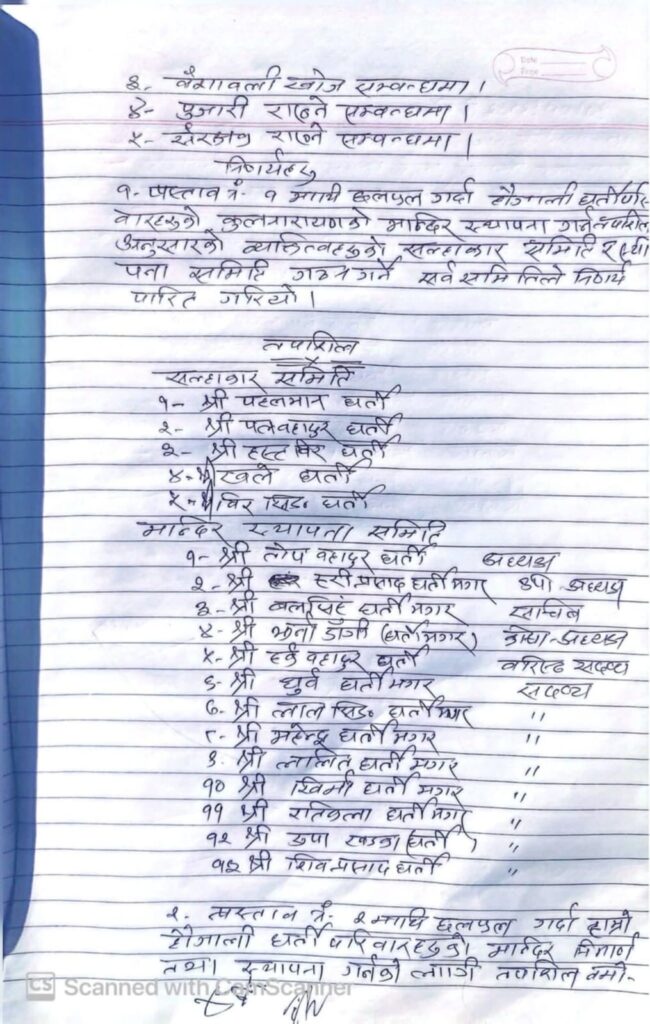 Date
Page
३- वंशावली खोज सम्वन्धमा ।
४- पुजारी राख्ने सम्वन्धमा ।
५- संरक्षक राख्ने सम्वन्धमा ।
निर्णयहरु
१- प्रस्ताव नं. १ माथि छलफल गर्दा हौजाली घर्ती परि
वारहरुको कुलनारायणको मान्दिर स्थापना गर्न तपशिल
अनुसारको व्यक्तित्वहरुको सल्लाहकार समिति र स्था
पना समिति गठन गर्ने सर्व सम्मतिले निर्णय
पारित गरियो ।
तपाशिल
सल्लाहकार समिति
१- श्री पहलमान घर्ती
२- श्री वहादुर घर्ती
३- श्री हस्त विर घर्ती
४- श्री रवले घर्ती
५- श्री विर सिङ घर्ती
मान्दिर स्थापना समिति
१- श्री तोप वहादुर घर्ती अध्यक्ष
२- श्री हरी प्रसाद घर्ती मगर उपा-अध्यक्ष
३- श्री वलसिंह घर्ती मगर साचिब
४- श्री झर्ना डाँगी (घर्ती मगर) अध्यक्ष
५- श्री हर्क वहादुर घर्ती वरिष्ठ सदस्य
६- श्री धुर्व घर्ती मगर सदस्य
७- श्री लाल सिङ घर्ती मगर "
८- श्री महेन्द्र घर्ती मगर "
९- श्री ललित घर्ती मगर "
१० श्री खिमी घर्ती मगर "
११ श्री रातिकला घर्ती मगर "
१२ श्री रुपा खड्का (घर्ती) "
१३ श्री शिव प्रसाद घर्ती "
२. प्रस्ताव नं. २ माथि छलफल गर्दा हाम्रो
हौजाली घर्ती परिवारहरुको मान्दिर निर्माण
तथा स्थापना गर्नको लागी तपाशिल वमो-
CS Scanned with CamScanner